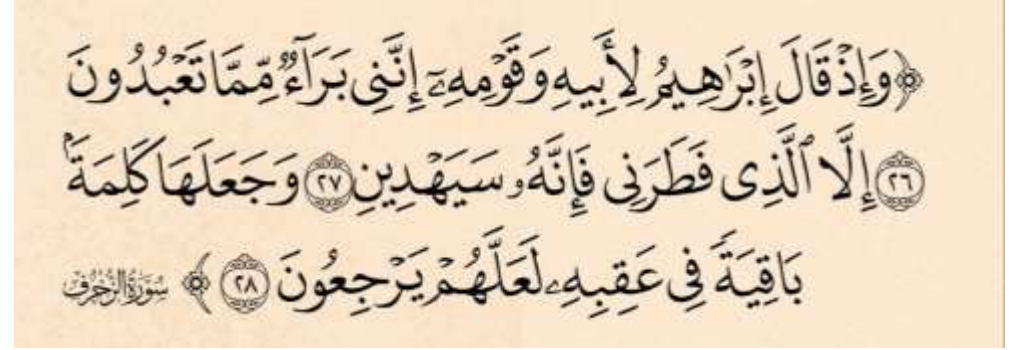 ﴿وَإِذْ قَالَ إِبْرَٰهِيمُ لِأَبِيهِ وَقَوْمِهِۦٓ إِنَّنِى بَرَآءٌ مِّمَّا تَعْبُدُونَ
٢٦ إِلَّا ٱلَّذِى فَطَرَنِى فَإِنَّهُۥ سَيَهْدِينِ ٢٧ وَجَعَلَهَا كَلِمَةًۢ
بَاقِيَةً فِى عَقِبِهِۦ لَعَلَّهُمْ يَرْجِعُونَ ٢٨ ﴾ سُورَةُ الزُّخْرُفِ